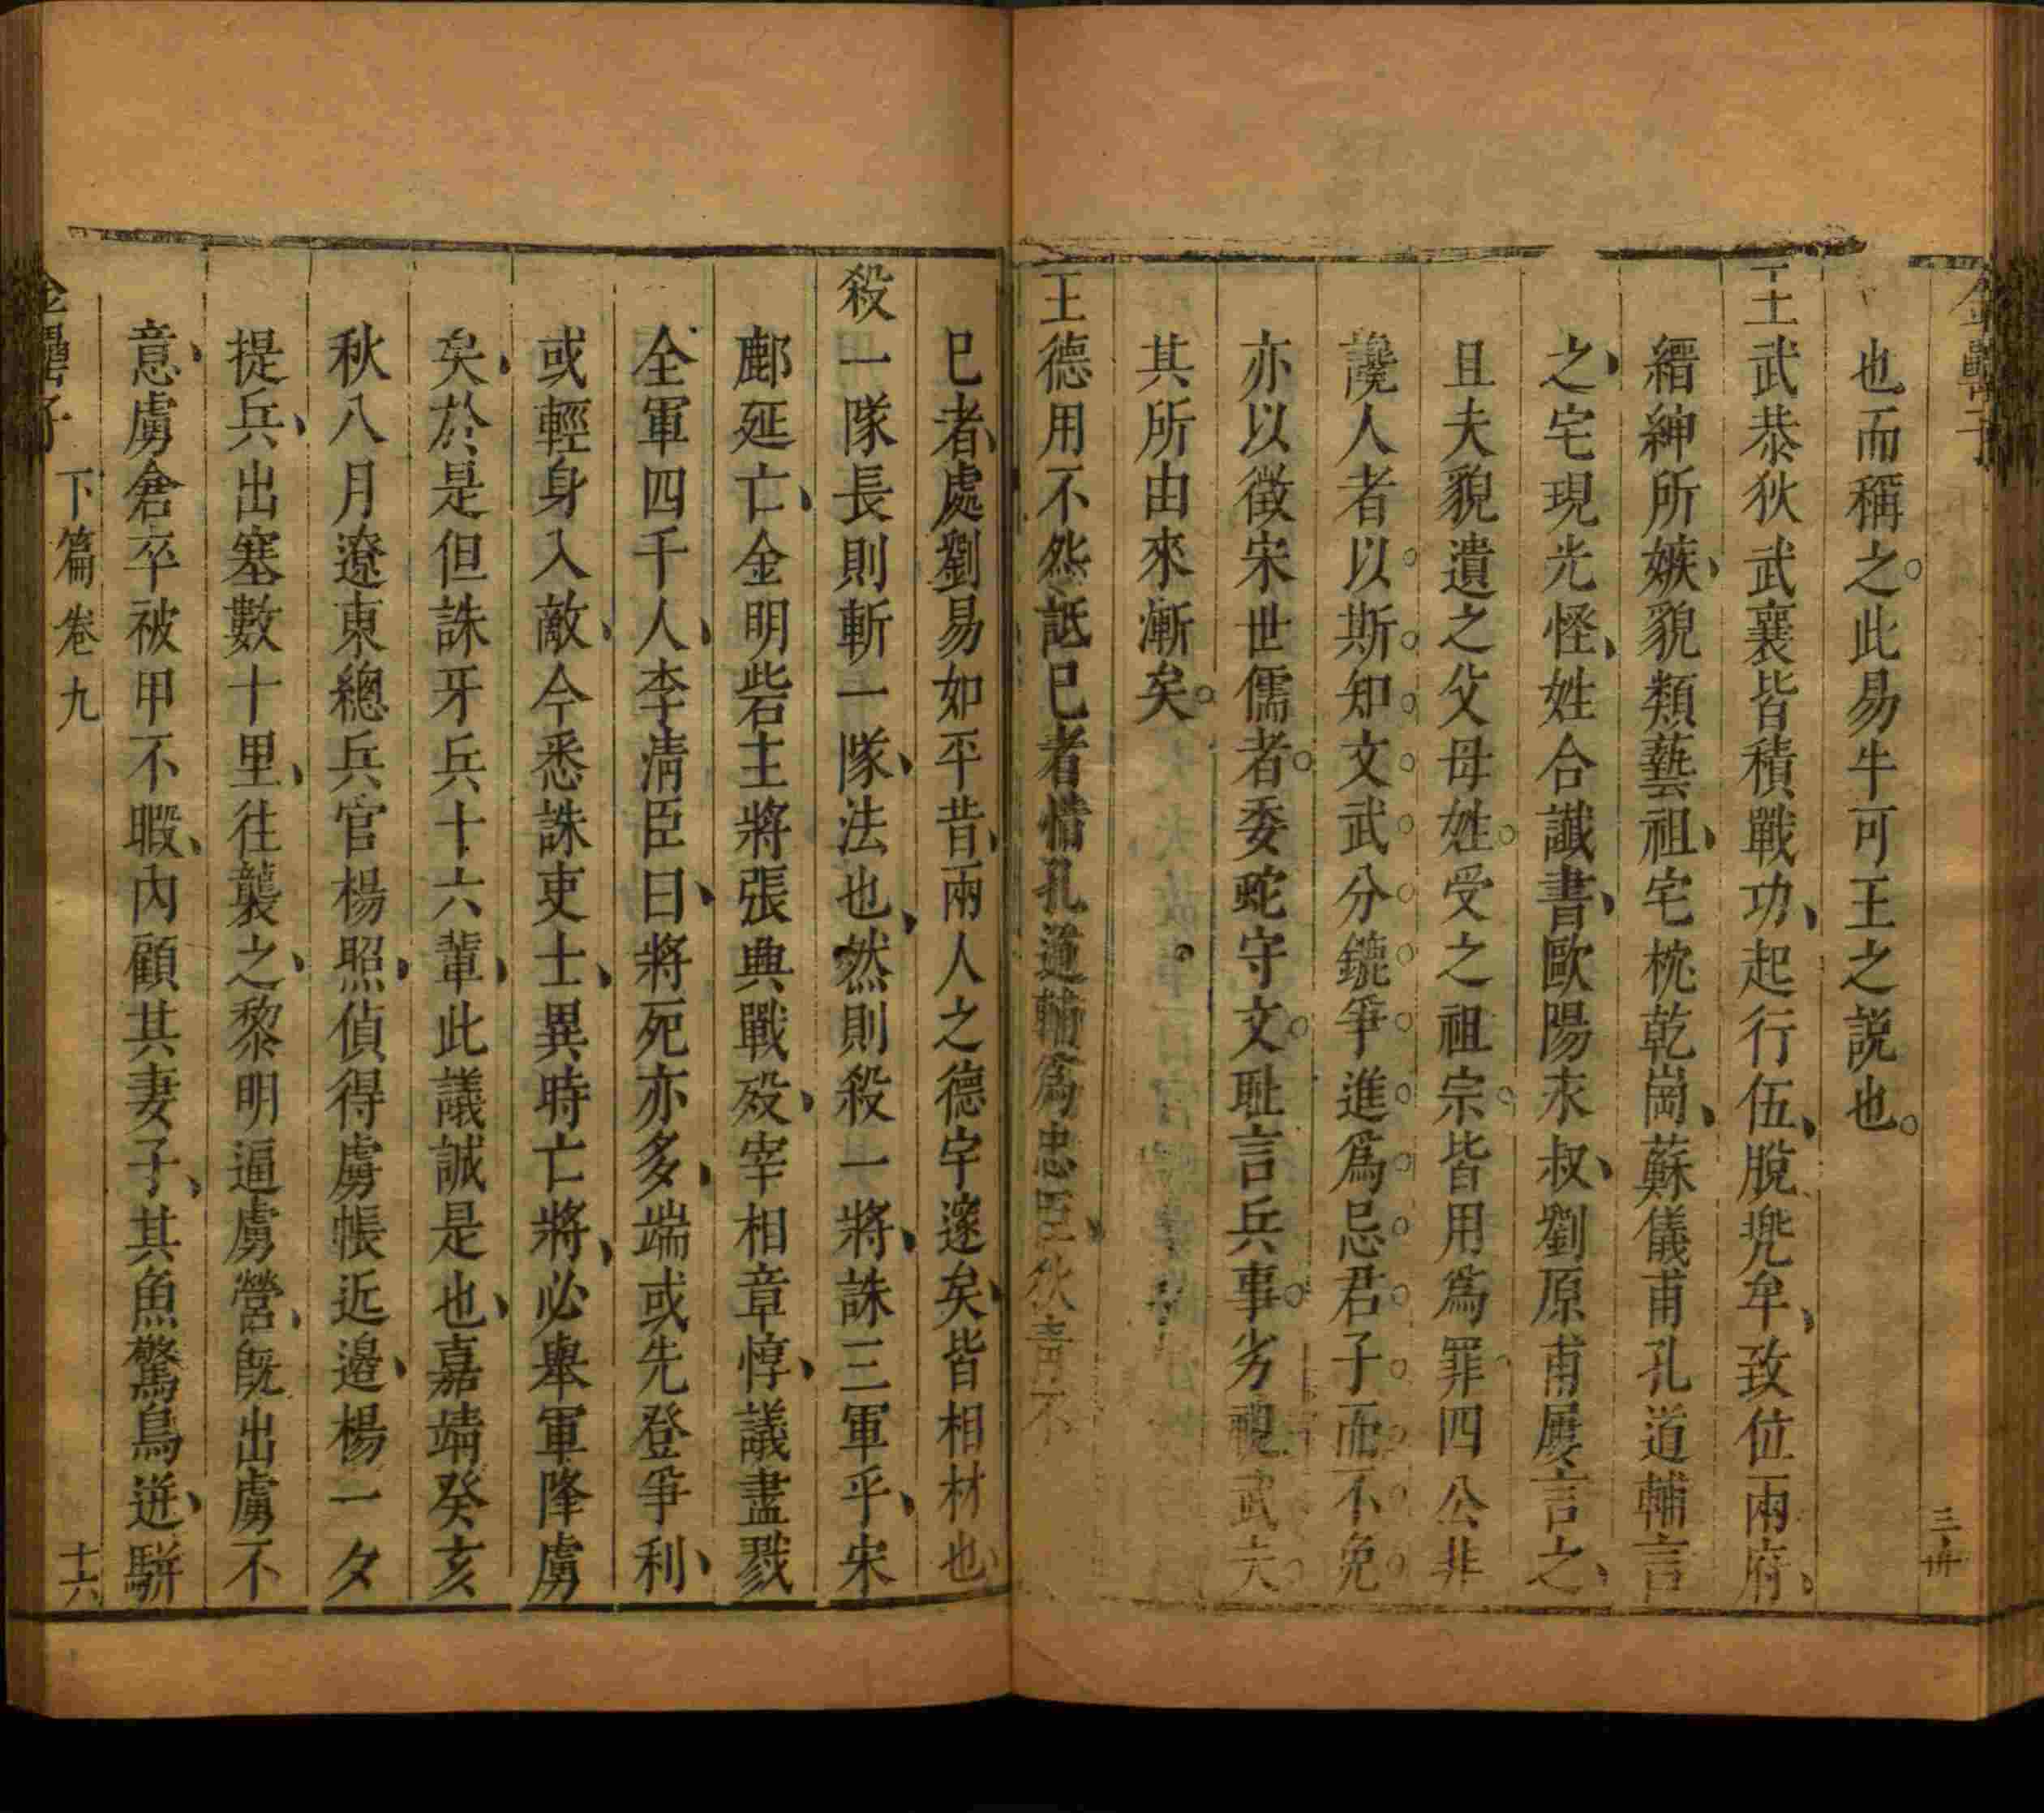 金罍子
三卅
也而稱之此易牛可王之説也
王武恭狄武襄皆積戰功起行伍脫兠牟致位兩府
縉紳所嫉貌類藝祖宅枕乾崗蘇儀甫孔道輔言
之宅現光怪姓合讖書歐陽永叔劉原甫屢言之
且夫貌遺之父母姓受之祖宗皆用爲罪四公非
讒人者以斯知文武分鑣爭進爲忌君子而不免
亦以徵宋世儒者委蛇守文耻言兵事劣視武夫
其所由來漸矣
王德用不怨詆已者惜孔道輔爲忠臣狄青不
已者處劉易如平昔兩人之德宇邃矣皆相材也
殺一隊長則斬一隊法也然則殺一將誅三軍乎宋
鄜延亡金明砦主將張典戰歿宰相章惇議盡戮
全軍四千人李淸臣曰將死亦多端或先登爭利
或輕身入敵今悉誅吏士異時亡將必舉軍降虜
矣於是但誅牙兵十六輩此議誠是也嘉靖癸亥
秋八月遼東總兵官楊照偵得虜帳近邉楊一夕
提兵出塞數十里往襲之黎明逼虜營旣出虜不
意虜倉卒被甲不暇內顧其妻子其魚驚鳥迸駢
金罍子
下篇卷九
十六